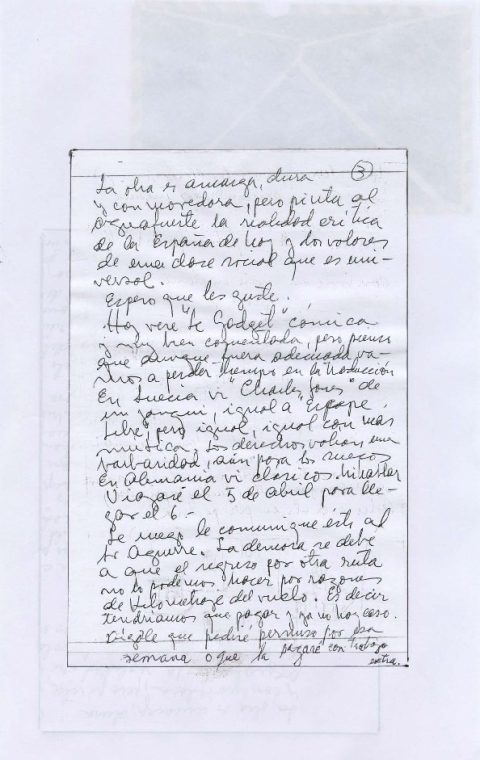 3
La obra es amarga, dura
y conmovedora, pero pinta al
aguafuerte la realidad crítica
de la España de hoy y dos valores
de una clase social que es uni-
versal.
Espero que les guste.
Hoy veré "le Gadget" cómica
y muy bien comentada, pero pienso
que aunque fuera adecuada va-
mos a perder tiempo en la traducción
En Suecia vi "Charley" de
un yanqui, igual a Escape
Libre, pero igual, igual con más
música. Los derechos valían una
barbaridad, aún para los suecos
En Alemania vi clásicos.
Viajaré el 5 de Abril para lle-
gar el 6-
Le ruego le comunique ésto al
Sr Aguirre. La demora se debe
a que el regreso por otra ruta
no lo podemos hacer por razones
de kilometraje del vuelo. Es decir
tendríamos que pagar y ya no hay caso.
Dígale que pediré permiso por esa
semana o que la pagaré con trabajo
extra.